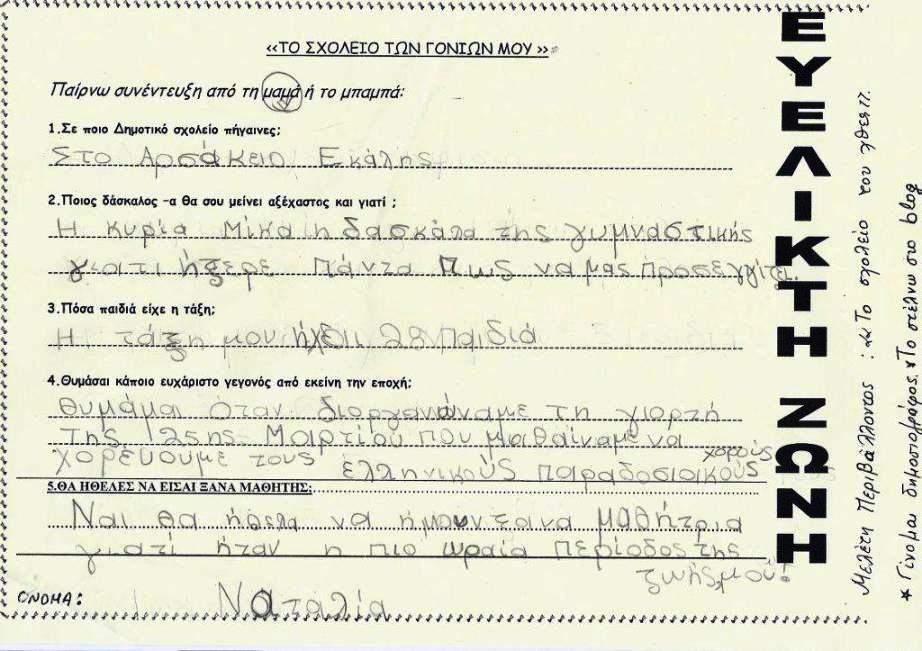 «ΤΟ ΣΧΟΛΕΙΟ ΤΩΝ ΓΟΝΙΩΝ ΜΟΥ»
Παίρνω συνέντευξη από τη μαμά ή το μπαμπά:
1.Σε ποιο Δημοτικό σχολείο πήγαινες;
Στο Αρσάκειο Εκάλης
2.Ποιος δάσκαλος -α θα σου μείνει αξέχαστος και γιατί ;
Η κυρία Μίκα η δασκάλα της γυμναστικής
γιατι ήξερε πάντα πως να μας προσεγγίσει.
3.Πόσα παιδιά είχε η τάξη;
Η τάξη μου 28 παιδιά
4.Θυμάσαι κάποιο ευχάριστο γεγονός από εκείνη την εποχή;
Θυμάμαι όταν διοργανώναμε τη γιορτή
της 25ης Μαρτίου που μαθαίναμε να
χορεύουμε τους ελληνικούς παραδοσιακούς χορούς
5.ΘΑ ΗΘΕΛΕΣ ΝΑ ΕΙΣΑΙ ΞΑΝΑ ΜΑΘΗΤΗΣ;
Ναι θα ήθελα να ήμουν ξανα μαθήτρια
γιατί ήταν η πιο ωραία περίοδος της
ζωής μου!
ΟΝΟΜΑ: Ναταλία
ΕΥΕΛΙΚΤΗ ΖΩΝΗ
Μελέτη Περιβάλλοντος : «Το σχολείο του χθες».
* Γίνομαι δημοσιογράφος. Το στέλνω στο blog